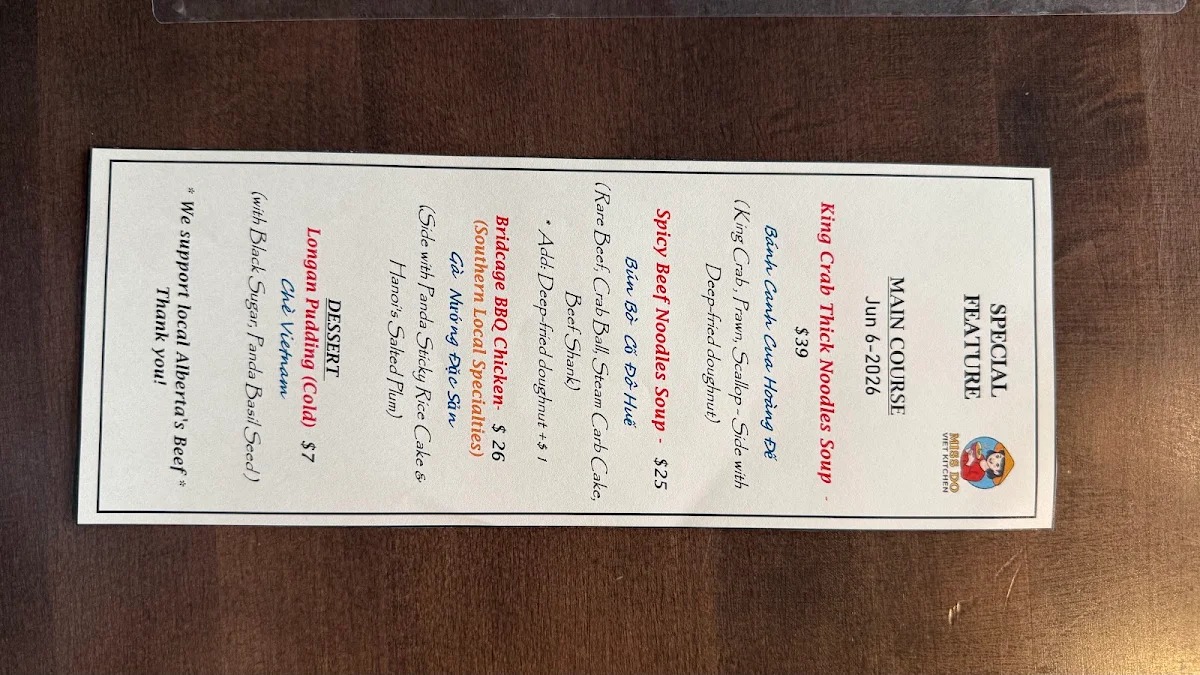 SPECIAL
FEATURE
MISS DO
VIET KITCHEN
MAIN COURSE
Jun 6-2026
King Crab Thick Noodles Soup -
$39
Bánh Canh Cua Hoàng Đế
(King Crab, Prawn, Scallop - Side with
Deep-fried doughnut)
Spicy Beef Noodles Soup - $25
Bún Bò Cố Đô Huế
(Rare Beef, Crab Ball, Steam Carb Cake,
Beef Shank)
• Add: Deep-fried doughnut +$ 1
Bridcage BBQ Chicken- $ 26
(Southern Local Specialties)
Gà Nướng Đặc Sản
(Side with Panda Sticky Rice Cake &
Hanoi's Salted Plum)
DESSERT
Longan Pudding (Cold) $7
Chè Vietnam
(with Black Sugar, Panda Basil Seed)
* We support local Alberta's Beef *
Thank you!